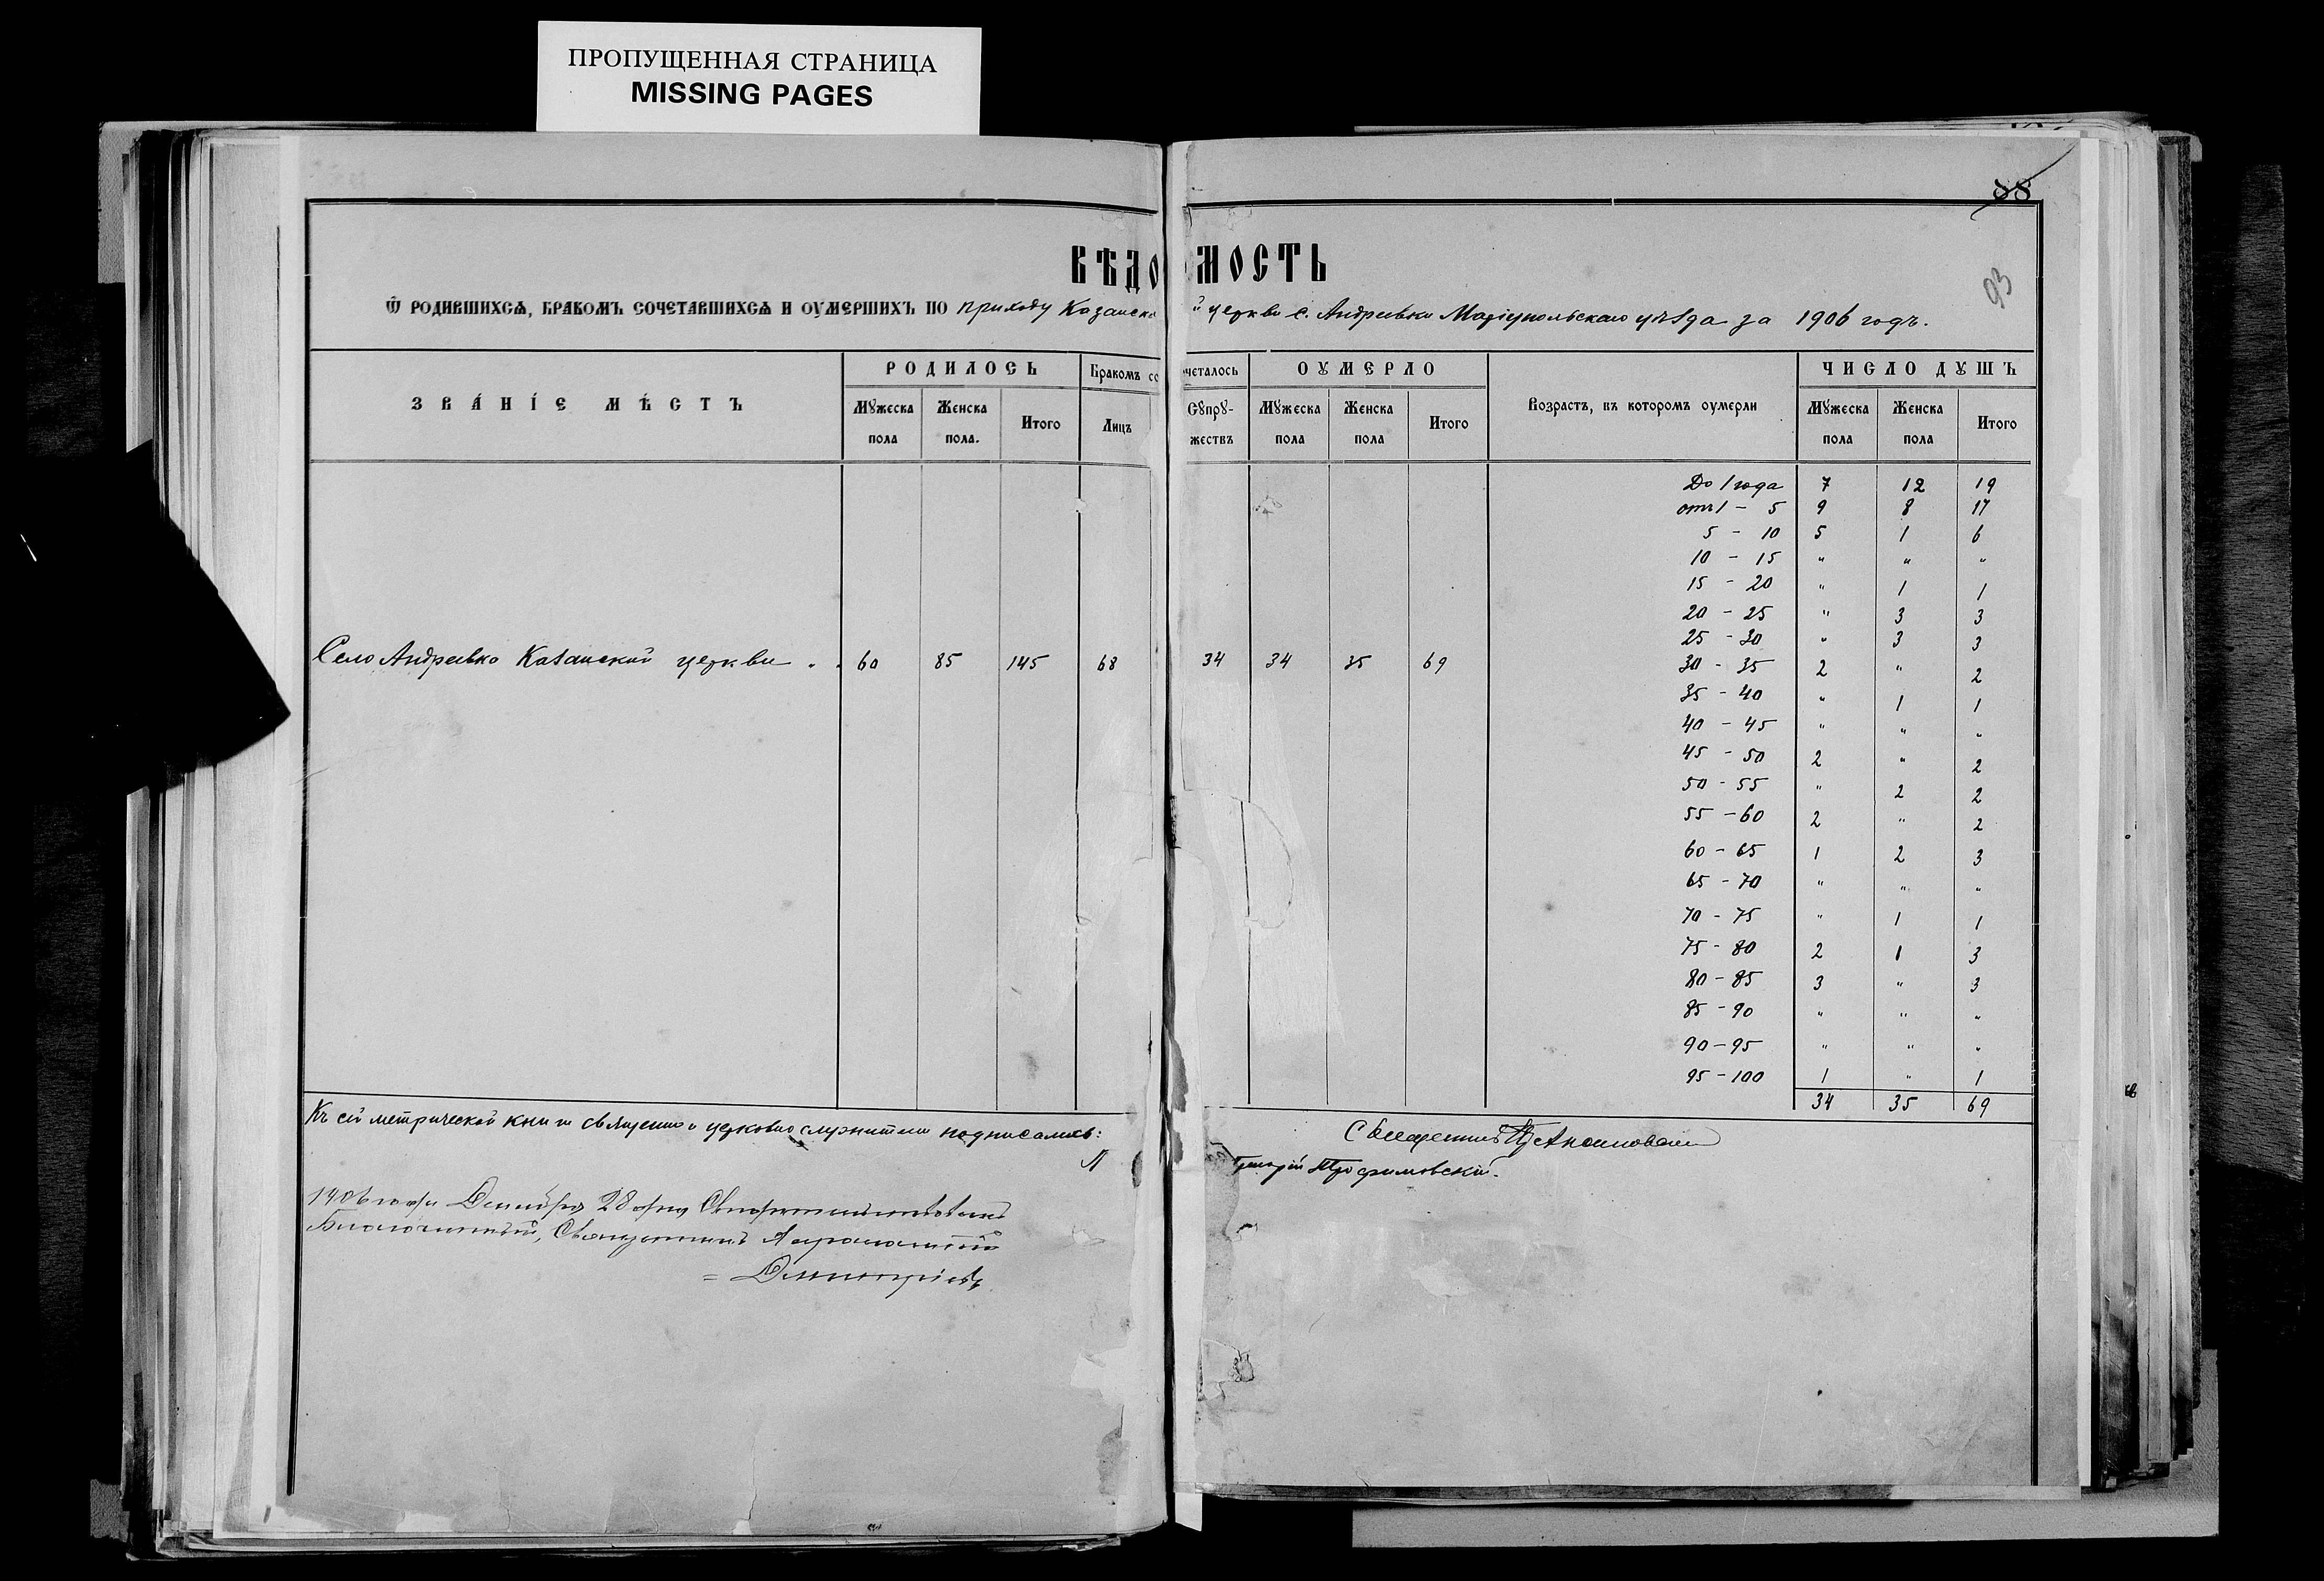 ПРОПУЩЕННАЯ СТРАНИЦА
MISSING PAGES
88
93
ВѢДОМОСТЬ
Ѿ РОДИВШИХСѦ, БРАКОМЪ СОЧЕТАВШИХСѦ И ОУМЕРШИХЪ ПО приходу Казанской церкви с. Андреевки Маріупольскаго уѣзда за 1906 годъ.
ЗВА́НІЕ МѢ́СТЪ
РОДИЛОСЬ
Бракомъ сочеталось
ОУМЕРЛО
Возрастъ, въ которомъ оумерли
ЧИСЛО ДꙋШЪ
Мꙋжеска пола
Женска пола.
Итого
Лицъ
Сꙋпрꙋ-жествъ
Мꙋжеска пола
Женска пола
Итого
Мꙋжеска пола
Женска пола
Итого
До 1 года 7 12 19
отъ 1 - 5 9 8 17
5 - 10 5 1 6
10 - 15 " " "
15 - 20 " 1 1
20 - 25 " 3 3
25 - 30 " 3 3
Село Андреевка Казанской церкви . . 60 85 145 68 34 34 35 69
30 - 35 2 " 2
35 - 40 " 1 1
40 - 45 " " "
45 - 50 2 " 2
50 - 55 " 2 2
55 - 60 2 " 2
60 - 65 1 2 3
65 - 70 " " "
70 - 75 " 1 1
75 - 80 2 1 3
80 - 85 3 " 3
85 - 90 " " "
90 - 95 " " "
95 - 100 1 " 1
34 35 69
Къ сей метрической книгѣ священно и церковно служители подписались:
Священникъ
Трофимовскій.
1906 года Декабря 28 дня Свидѣтельствовалъ
Благочинный, Священникъ
= Димитріевъ